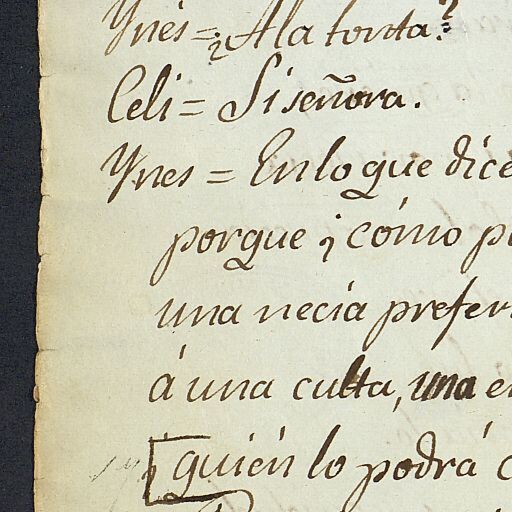 Ynés = ¿A la tonta?
Celi = Si señora.
Ynes = En lo que dice
porque ¿cómo p
una necia prefer
á una culta, una e
quién lo podrá c